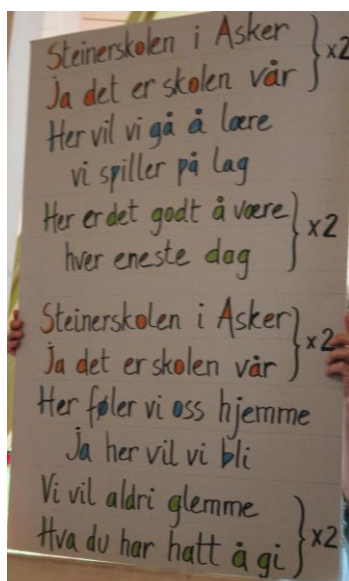 Steinerskolen i Asker } x2
Ja det er skolen vår
Her vil vi gå å lære
vi spiller på lag
Her er det godt å være } x2
hver eneste dag
Steinerskolen i Asker } x2
Ja det er skolen vår
Her føler vi oss hjemme
Ja her vil vi bli
Vi vil aldri glemme } x2
Hva du har hatt å gi